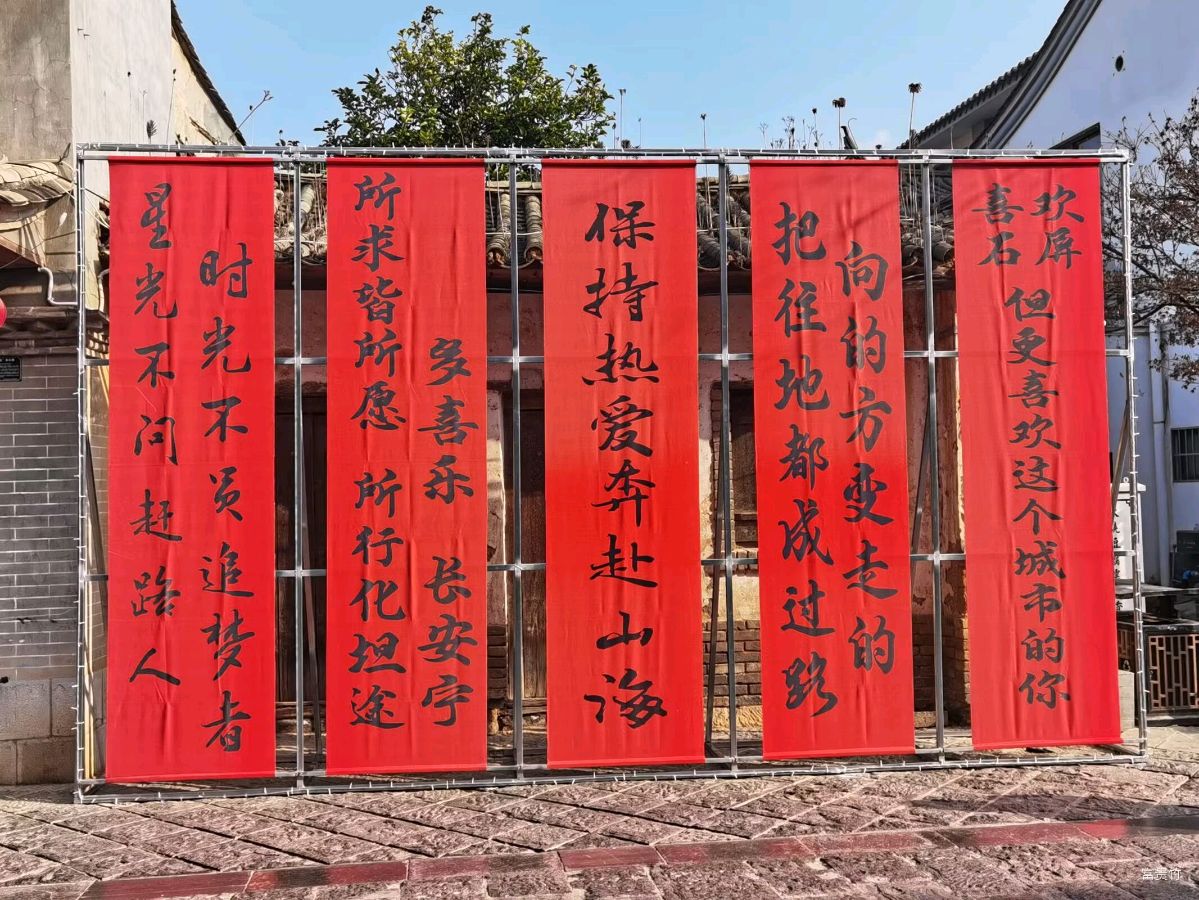 星光不问赶路人
时光不负追梦者
所求皆所愿 所行化坦途
多喜乐 长安宁
保持热爱奔赴山海
把向往的地方都变成走过的路
喜欢石屏但更喜欢这个城市的你
富贵竹